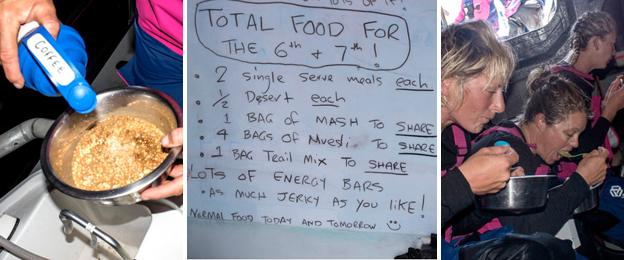 COFFEE
LOTS OF IT!
TOTAL FOOD FOR
THE 6th + 7th !
• 2 single serve meals each
• 1/2 Desert each
• 1 BAG of MASH TO SHARE
• 4 BAGS OF Muesli TO SHARE
• 1 BAG Trail Mix TO SHARE
LOTS OF ENERGY BARS
• AS MUCH JERKY AS YOU LIKE!
NORMAL FOOD TODAY AND TOMORROW ☺